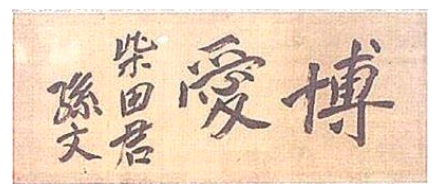 博愛
柴田君
孫文